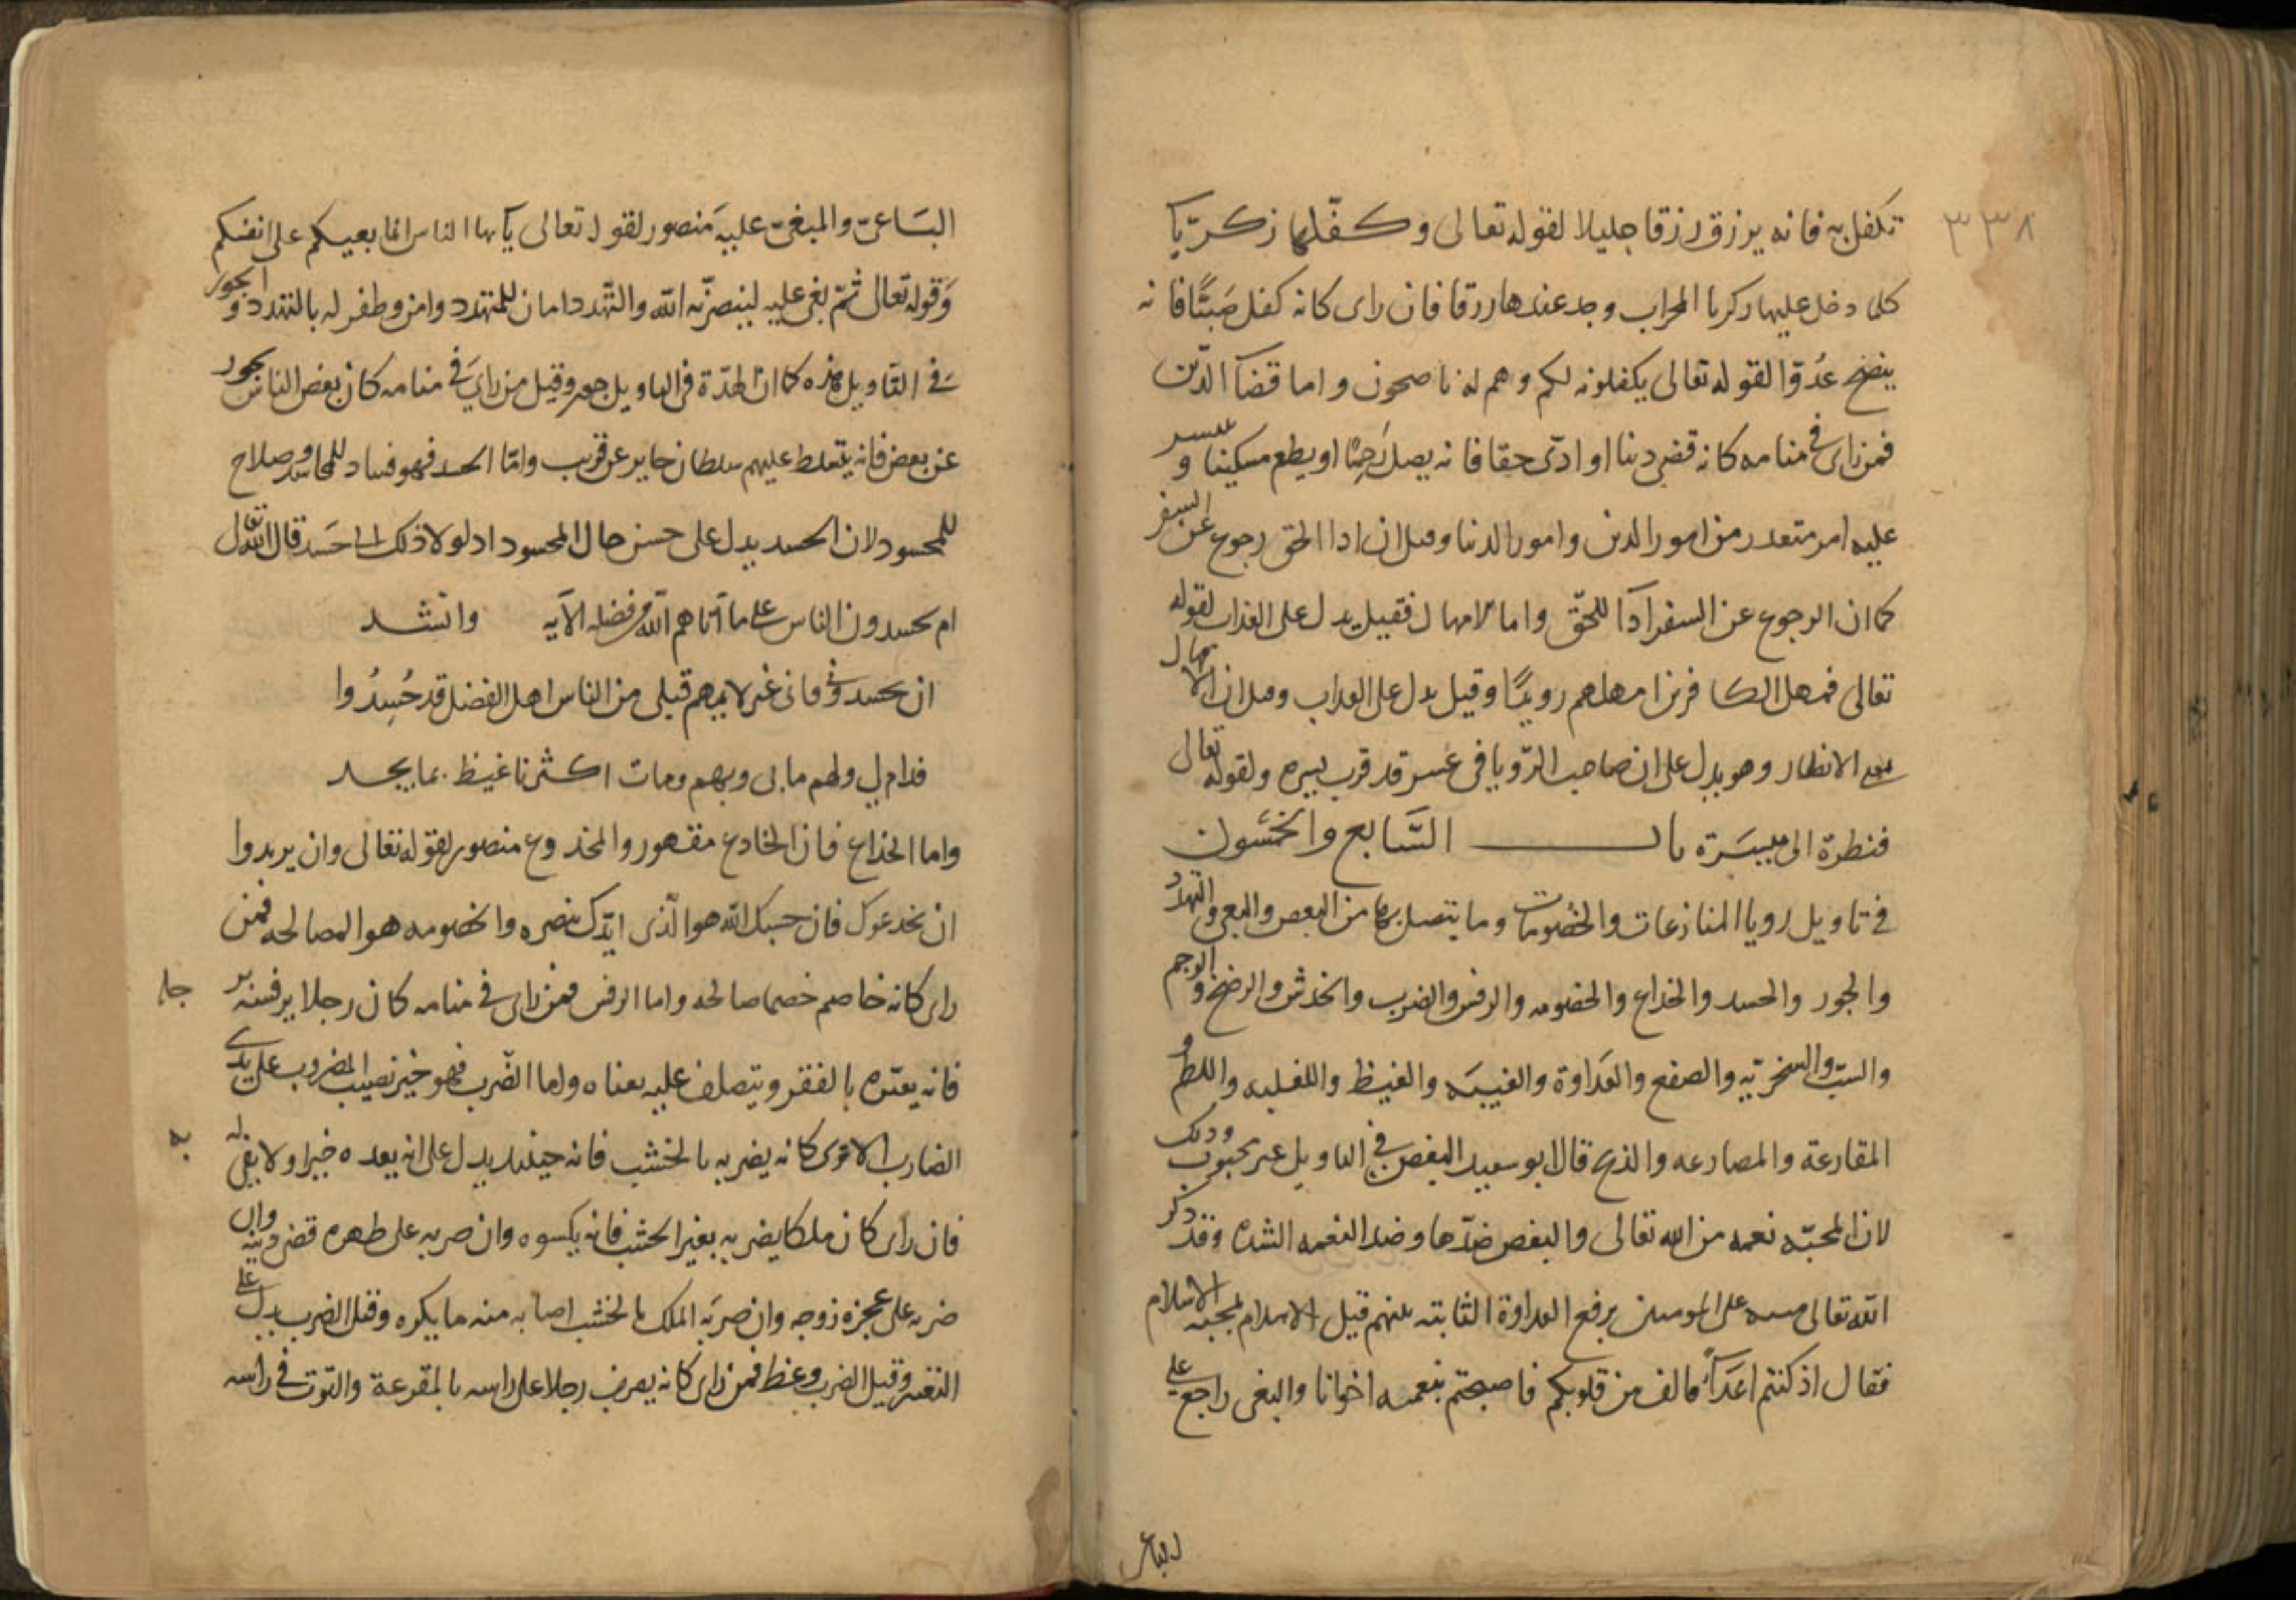 ٣٣٨
تكفل به فانه يرزق رزقا جليلا لقوله تعالى وكفّلها زكريّا
كلما دخل عليها زكريا المحراب وجد عندها رزقا فان راى كانه كفل صبيًّا فانه
ينصح عدوّا لقوله تعالى يكفلونه لكم وهم له ناصحون واما قضآ الدّين
فمن راى فى منامه كانه قضى دينا او ادّى حقا فانه يصل رحمًا او يطعم مسكينا و
عليه امر متعدر من امور الدين وامور الدنيا وقيل ان ادا الحق رجوع عن السفر
كما ان الرجوع عن السفر ادآ للحقّ واما الامهال فقيل يدل على العذاب لقوله
تعالى فمهل الكافرين امهلهم رويدًا وقيل يدل على العداب وقيل ان الامهال
الانظار وهو يدل على ان صاحب الرّويا فى عسر قد قرب يسره ولقوله تعالى
فنظرة الى ميسَرة باب السَّابع والخمسون
فى تاويل رويا المنازعات والخصومات وما يتصل بها من البغض والبغى والتهدد
والجور والحسد والخداع والخصومه والرفس والضرب والخدش والرضخ والرجم
والسبّ والسخريّه والصفع والعداوة والغيبه والغيظ والغلبه واللطم و
المقارعة والمصارعه والذبح قال ابو سعيد البغض فى التاويل غير محبوب وذلك
لان المحبّه نعمه من الله تعالى والبغض ضدّها وضد النعمه الشده وقد ذكر
الله تعالى منته على المومنين برفع العداوة الثابته بينهم قبل الاسلام بمحبة الاسلام
فقال اذ كنتم اعدآءً فالف بين قلوبكم فاصبحتم بنعمته اخوانا والبغى راجع على
الباغى
البَاغى والمبغىّ عليه منصور لقوله تعالى يآيها الناس انما بغيكم على انفسكم
وَقوله تعالى ثمّ بغى عليه لينصرنّه الله والتّهدد امان للمتهدد وامن وظفر له بالتهدد و الجور
فى التاويل وقيل من راى فى منامه كان بعض الناس يجور
على بعض فانه يتسلط عليهم سلطان جاير عن قريب وامّا الحسد فهو فساد للحاسد وصلاح
للمحسود لان الحسد يدل على حسن حال المحسود اد لولا ذلك لما حَسَد قال الله تعالى
ام يحسدون الناس على ما آتاهم الله من فضله الآيه وانشد
ان يحسدونى فانى غير لايمهم قبلى من الناس اهل الفضل قد حُسِدُوا
فدام لى ولهم ما بى وبهم ومات اكثرنا غيظا بما يجد
واما الخداع فان الخادع مقهور والمخدوع منصور لقوله تعالى وان يريدوا
ان يخدعوك فان حسبك الله هو الّذى ايّدك بنصره والخصومه هو المصالحه فمن
راى كانه خاصم خصما صالحه واما الرفس فمن راى فى منامه كان رجلا يرفسه بر جله
فانه يعيّره بالفقر ويتصلف عليه بغناه واما الضّرب فهو خير نصيب المضروب على يدى
الضارب الا ان يرى كانه يضربه بالخشب فانه حينئذ يدل على انه يعده خيرا ولا يفى له به
فان راى كان ملكا يضربه بغير الخشب فانه يكسوه وان ضربه على ظهره قضى دينه وان
ضربه على عجزه زوجه وان ضربَه الملك بالخشب اصابه منه ما يكره وقيل الضرب يدل على
التغير وقيل الضرب وعظ فمن راى كانه يضرب رجلا على راسه بالمقرعة والتوت فى راسه